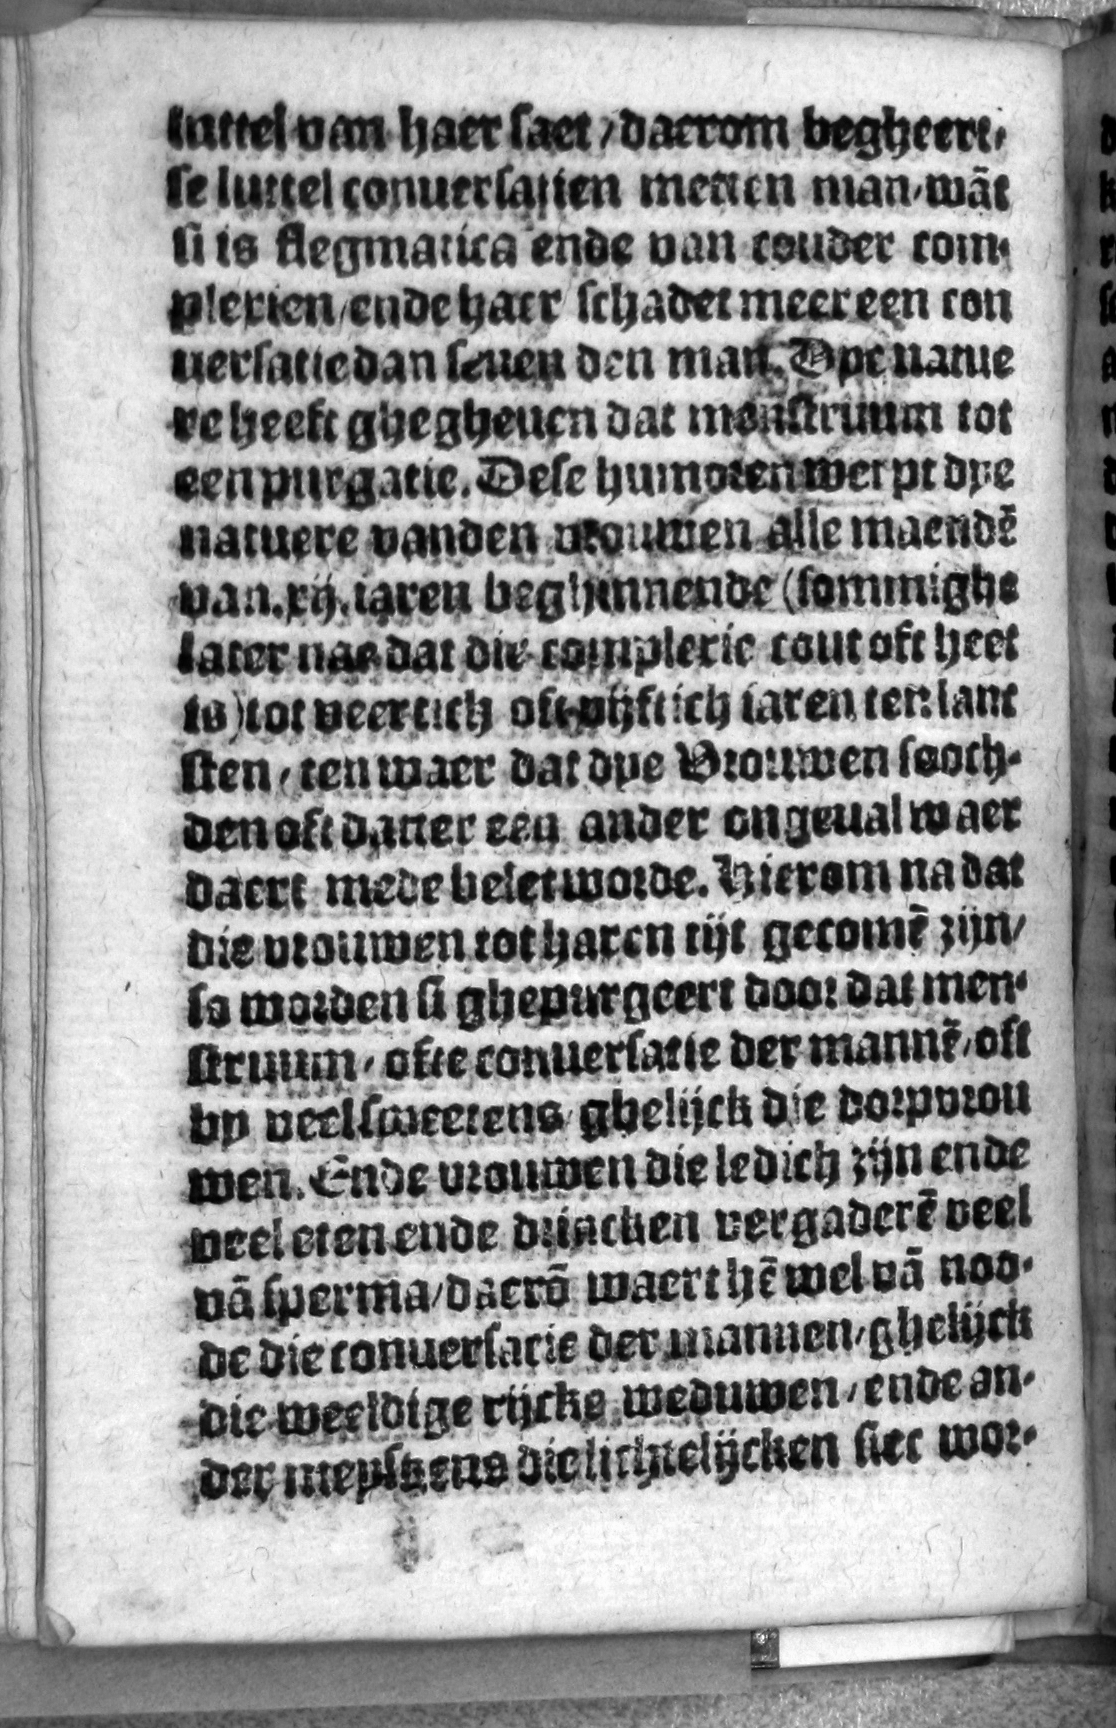 luttel van haer saet / daerom begheert-
se luttel conuersatien metten man / wāt
si is flegmatica ende van couder com-
plexien / ende haer schadet meer een con
uersatie dan seuen den man. Dye natue
re heeft ghegheuen dat menstruum tot
een purgatie. Dese humoren werpt dye
natuere vanden vrouwen alle maendē
van .xij. iaren beghinnende (sommighe
later nae dat die complexie cout oft heet
is) tot veertich oft vijftich iaren ter lanc
sten / ten waer dat dye Vrouwen sooch-
den oft datter een ander ongeual waer
daert mede belet worde. Hierom na dat
die vrouwen tot haren tijt gecomē zijn /
so worden si ghepurgeert door dat men-
struum / ofte conuersatie der mannē / oft
by veel sweetens / ghelijck die dorpvrou
wen. Ende vrouwen die ledich zijn ende
veel eten ende drincken vergaderē veel
vā sperma / daerō waert hē wel vā noo-
de die conuersatie der mannen / ghelijck
die weeldige rijcke weduwen / ende an-
der meyskens die lichtelijcken siec wor-